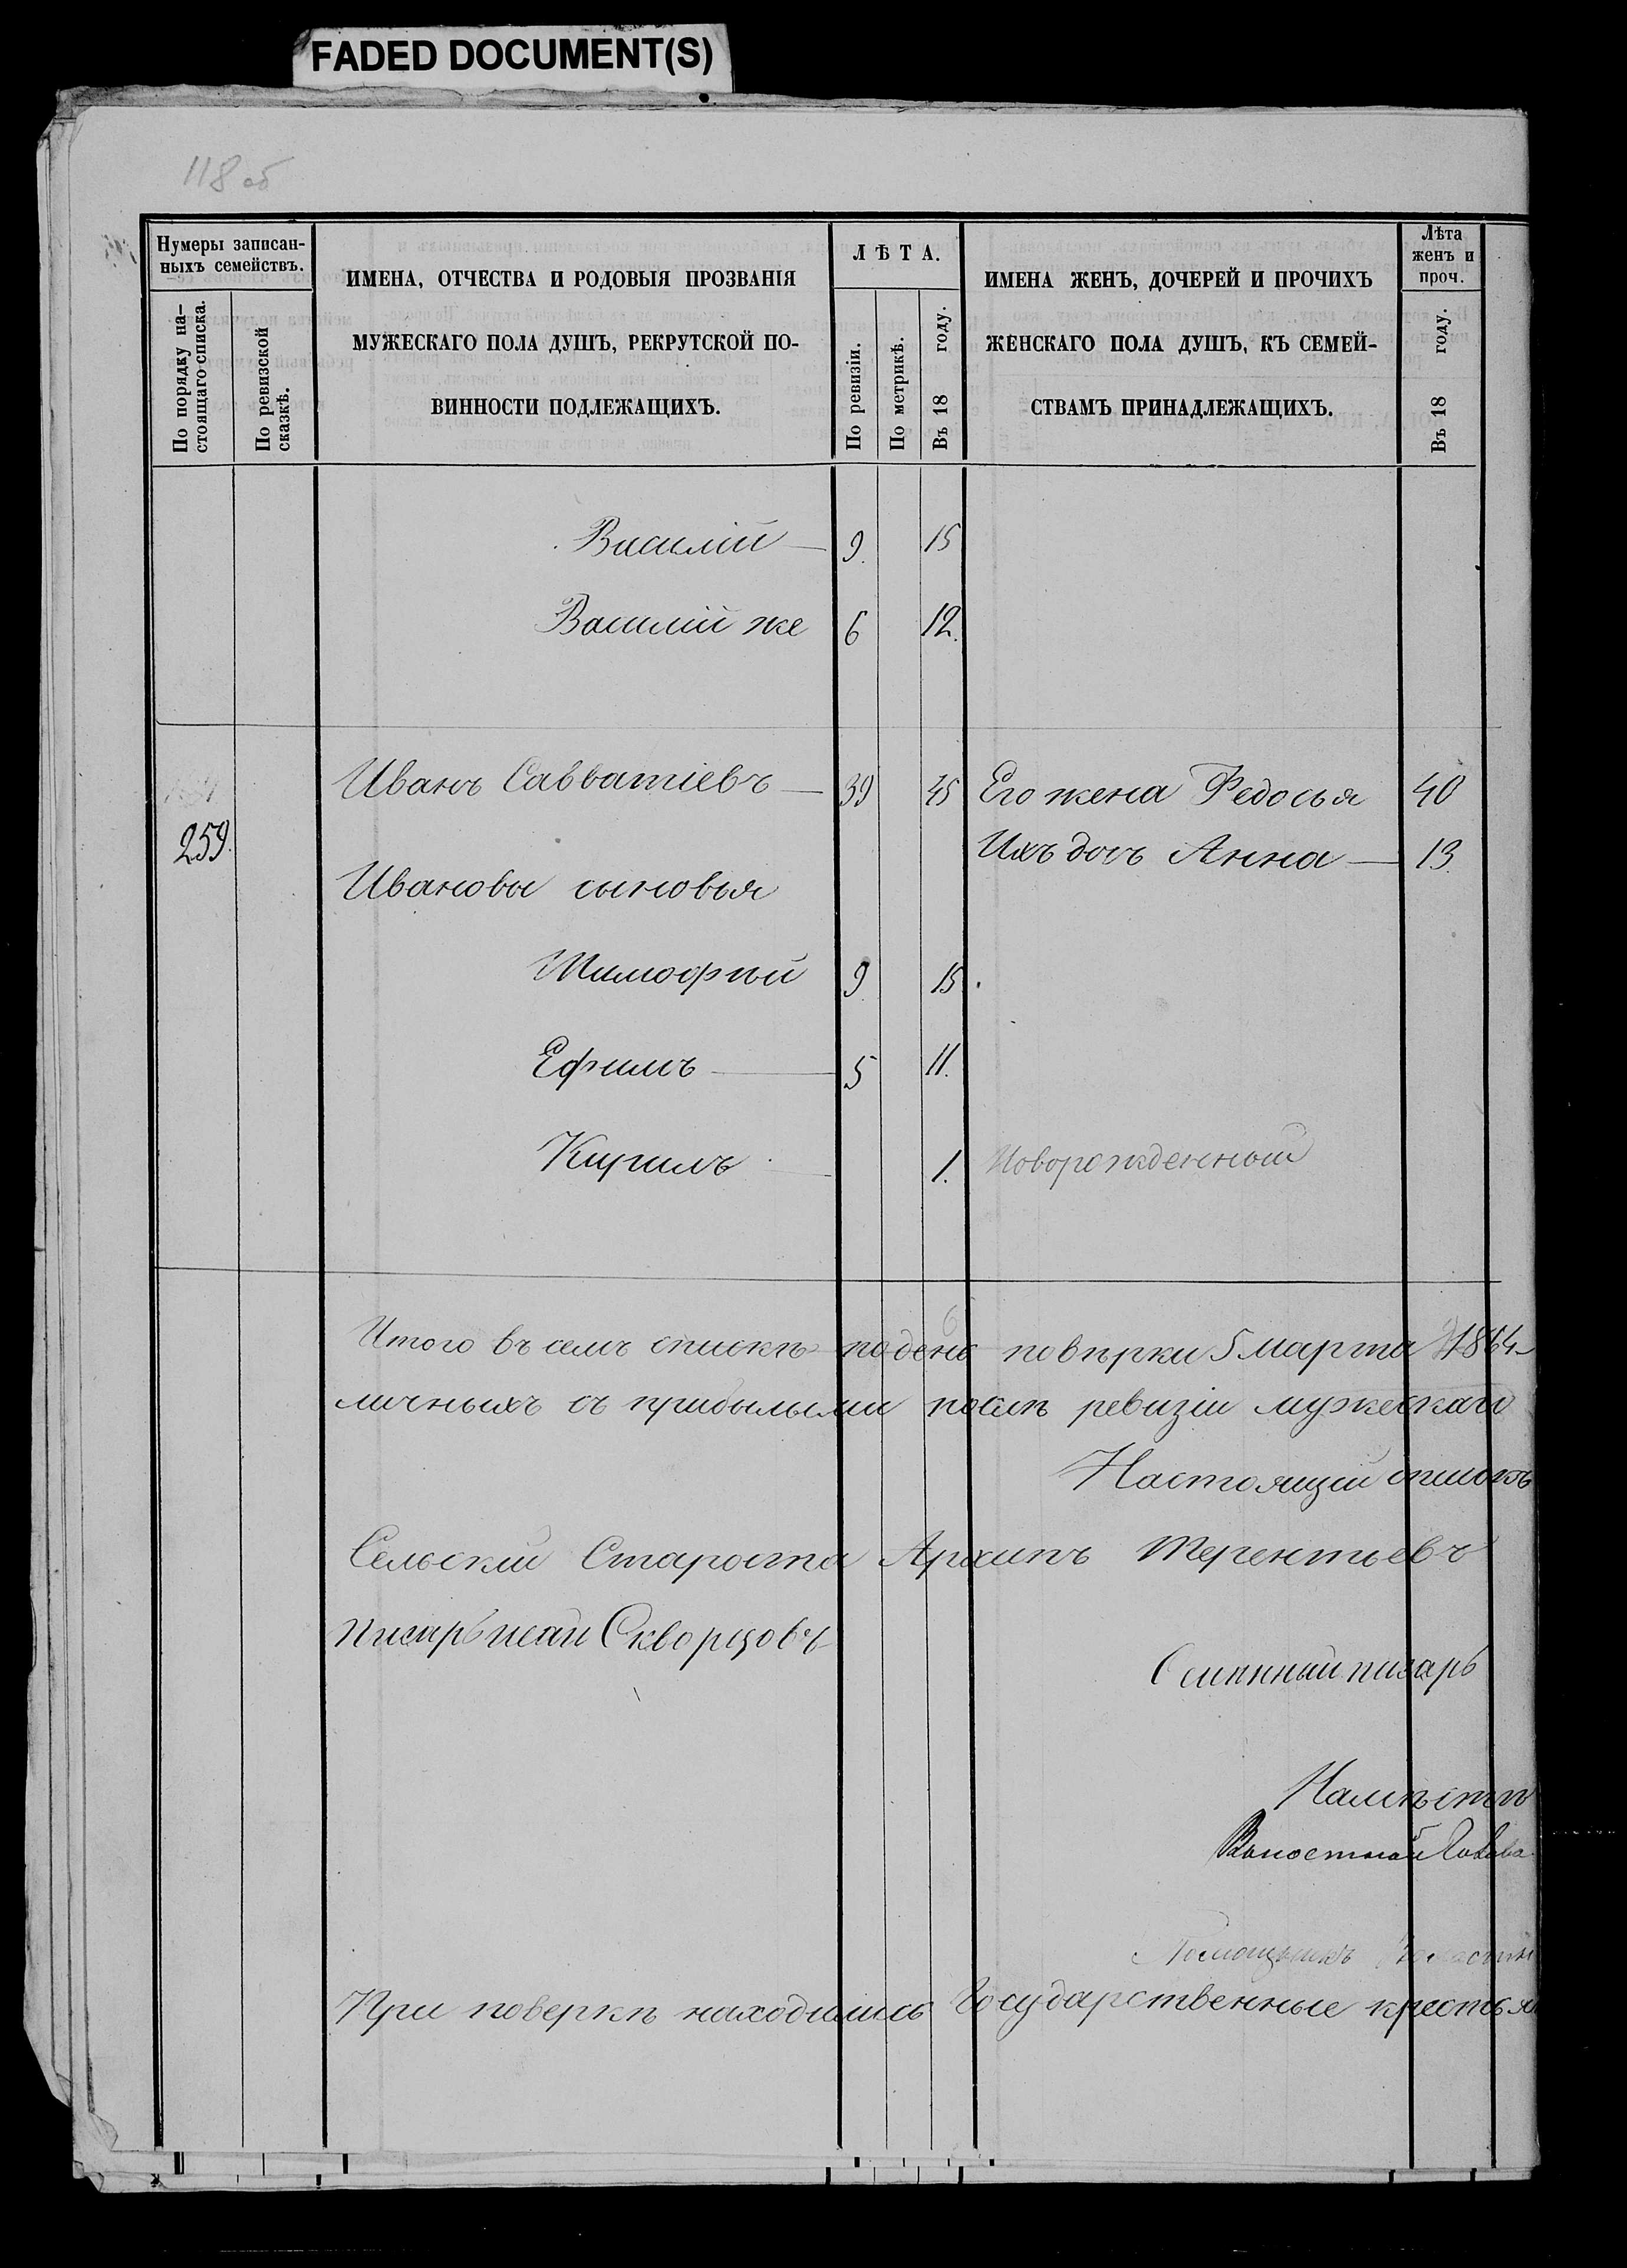 FADED DOCUMENT(S)
118 об
Нумеры записан-
ныхъ семействъ.
По порядку на-
стоящаго списка.
По ревизской
сказкѣ.
ИМЕНА, ОТЧЕСТВА И РОДОВЫЯ ПРОЗВАНІЯ
МУЖЕСКАГО ПОЛА ДУШЪ, РЕКРУТСКОЙ ПО-
ВИННОСТИ ПОДЛЕЖАЩИХЪ.
ЛѢТА.
По ревизіи.
По метрикѣ.
Въ 18 году.
ИМЕНА ЖЕНЪ, ДОЧЕРЕЙ И ПРОЧИХЪ
ЖЕНСКАГО ПОЛА ДУШЪ, КЪ СЕМЕЙ-
СТВАМЪ ПРИНАДЛЕЖАЩИХЪ.
Лѣта
женъ и
проч.
Въ 18 году.
Василій 9. 15
Василій же 6 12.
Иванъ Савватіевъ 39 45 Его жена Федосья 40
259. Ихъ дочь Анна 13.
Ивановы сыновья
Тимофѣй 9. 15.
Ефимъ 5 11.
Кирилъ 1. Новорожденный
Итого въ семъ спискѣ по день повѣрки 5 марта 1864
личныхъ съ прибылыми послѣ ревизіи мужескаго
Настоящій списокъ
Сельскій Староста Архипъ Терентьевъ
писарь Скворцовъ
писарь
Волостной Голова
Помощникъ
При поверкѣ находились Государственные крестья